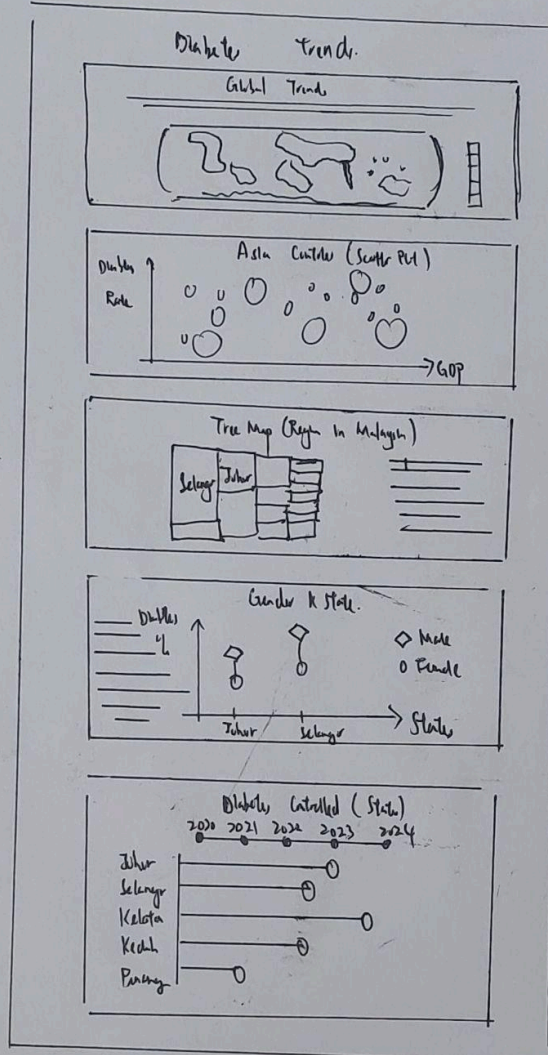 Diabetes Trends.
Global Trends
Asia Countries (Scatter Plot)
Diabetes
Rate
GDP
Tree Map (Region in Malaysia)
Selangor Johor
Gender & State.
Diabetes
%
Male
Female
Johor Selangor
States
Diabetes Controlled (States)
2020 2021 2022 2023 2024
Johor
Selangor
Kelatan
Kedah
Penang